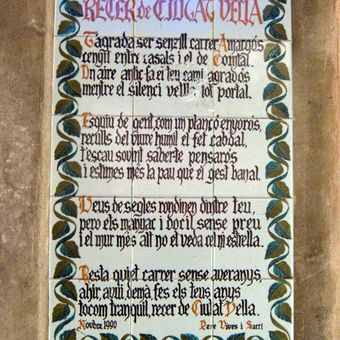 RECER de CIUTAT VELLA
T'agrada ser senzill carrer Amargós
cenyit entre casals i el de Comtal.
Un aire antic fa el teu camí agradós
mentre el silenci vetlla tot portal.
Esquiu de gent, com un plançó enyorós,
reculls del viure humil el fet cabdal,
t'escau sovint saber-te pensarós
i estimes més la pau que el gest banal.
Veus de segles rondinen dintre teu,
però ets manyac i dòcil, sense preu
i el mur més alt no et veda cel ni estrella.
Resta quiet carrer sense averanys,
ahir, avui, demà, fes els teus anys
tocom tranquil, recer de Ciutat Vella.
Novbre 1990 Pere Vives i Sarri